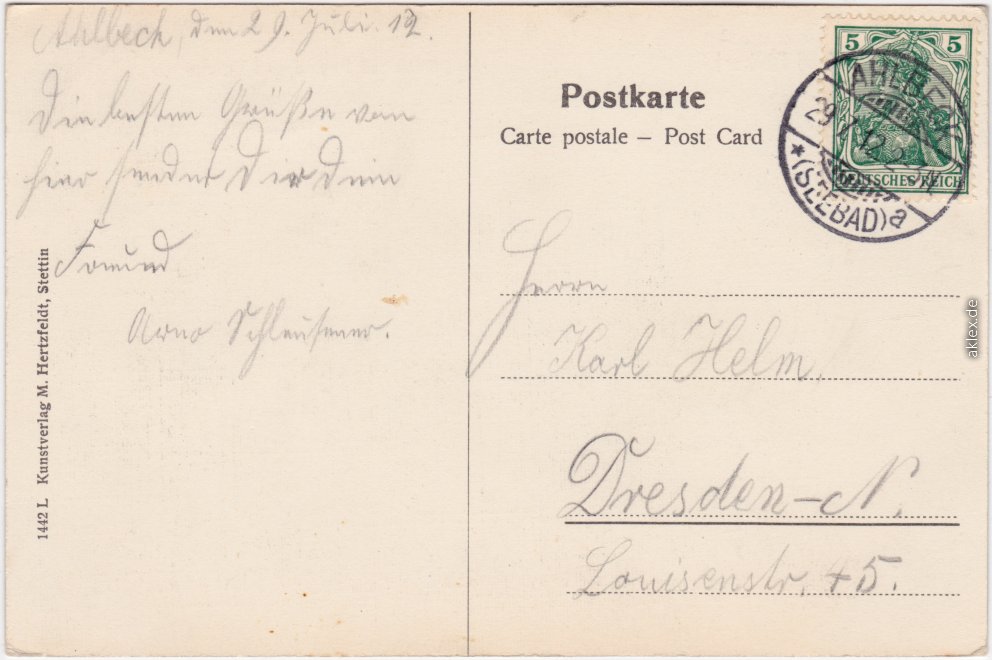 Ahlbeck, den 29. Juli. 12.
Die besten Grüße von
hier sendet Dir Dein
Freund
Arno Schleusener.
1442 L Kunstverlag M. Hertzfeldt, Stettin
Postkarte
Carte postale – Post Card
5 5
DEUTSCHES REICH
AHLBECK
29.7.12.2-3N.
*(SEEBAD)a
Herrn
Karl Helm,
Dresden-N.
Louisenstr. 45.
aklex.de